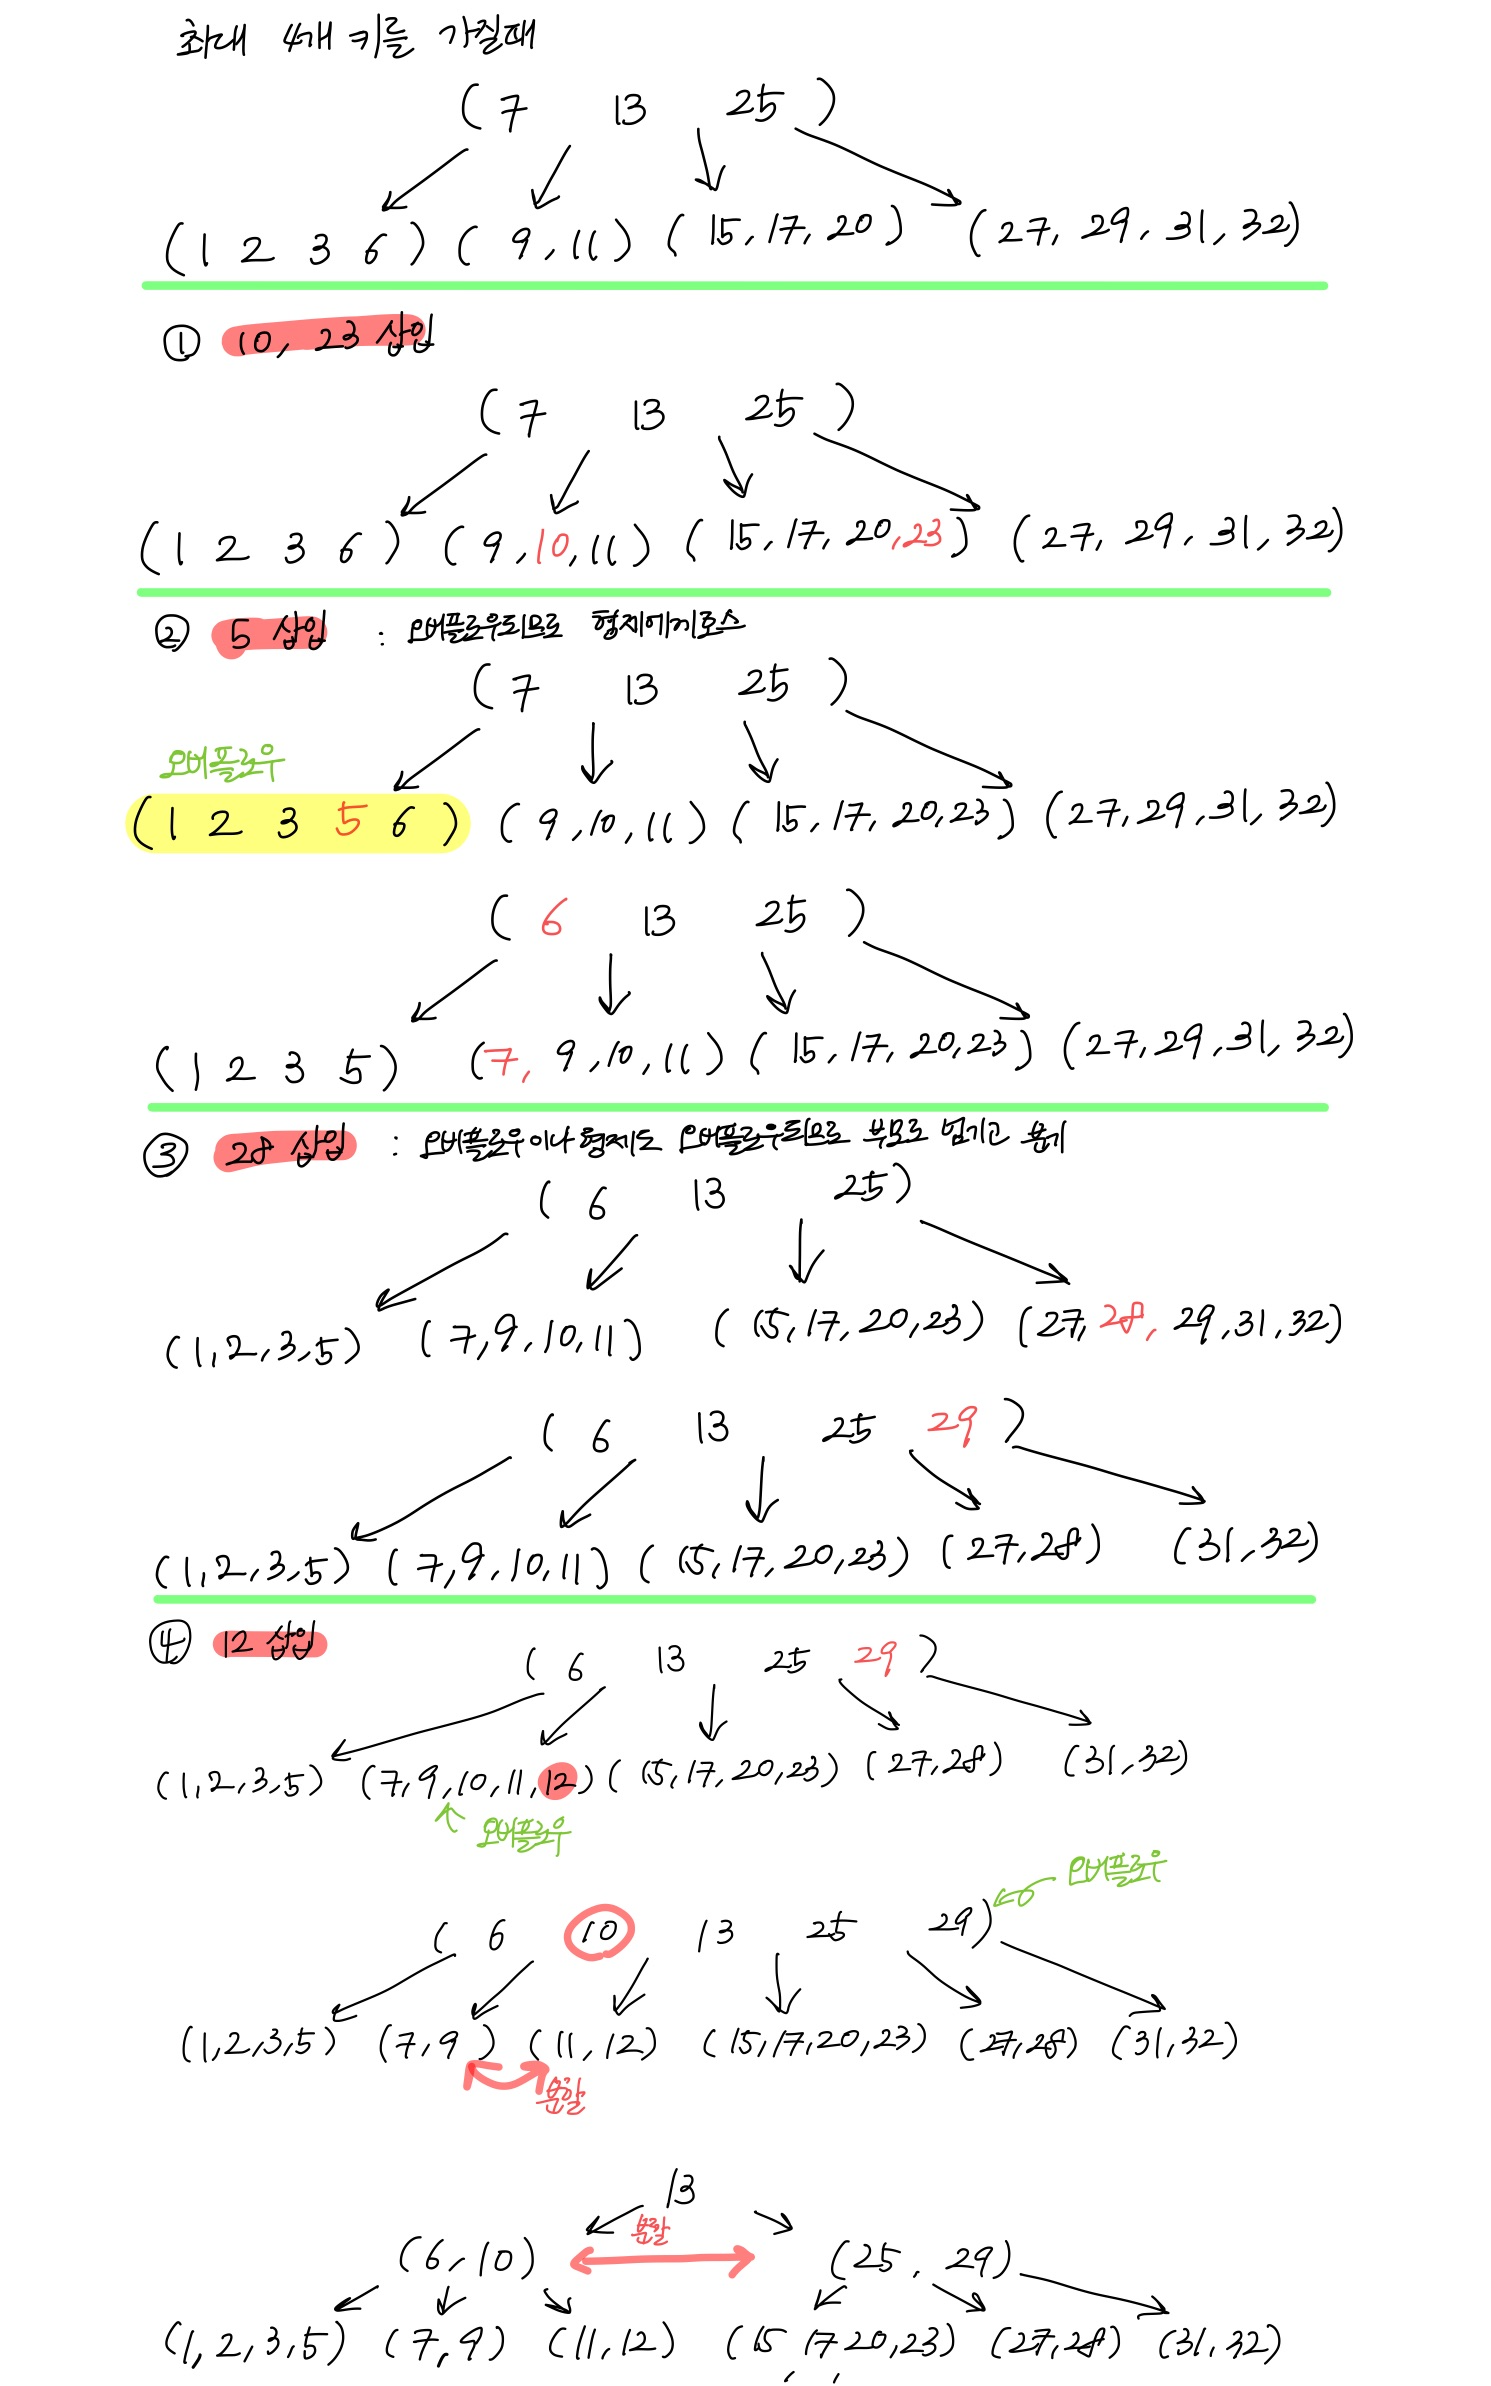 최대 4개 키를 가질때
( 7 13 25 )
(1 2 3 6) ( 9, 11) ( 15, 17, 20 ) (27, 29, 31, 32)
① 10, 23 삽입
( 7 13 25 )
(1 2 3 6) ( 9, 10, 11) ( 15, 17, 20, 23) (27, 29, 31, 32)
② 5 삽입 : 오버플로우되므로 형제에게토스
( 7 13 25 )
오버플로우
(1 2 3 5 6 ) ( 9, 10, 11) ( 15, 17, 20, 23) (27, 29, 31, 32)
( 6 13 25 )
(1 2 3 5) (7, 9, 10, 11) ( 15, 17, 20, 23) (27, 29, 31, 32)
③ 28 삽입 : 오버플로우이나 형제도 오버플로우되므로 부모로 넘기고
( 6 13 25)
(1, 2, 3, 5) (7, 9, 10, 11) (15, 17, 20, 23) (27, 28, 29, 31, 32)
( 6 13 25 29 )
(1, 2, 3, 5) (7, 9, 10, 11) (15, 17, 20, 23) (27, 28) (31, 32)
④ 12 삽입
( 6 13 25 29 )
(1, 2, 3, 5) (7, 9, 10, 11, 12) (15, 17, 20, 23) (27, 28) (31, 32)
오버플로우
오버플로우
( 6 10 13 25 29)
(1, 2, 3, 5) (7, 9 ) (11, 12) (15, 17, 20, 23) (27, 28) (31, 32)
분할
13
분할
(6, 10) (25, 29)
(1, 2, 3, 5) (7, 9) (11, 12) (15, 17, 20, 23) (27, 28) (31, 32)